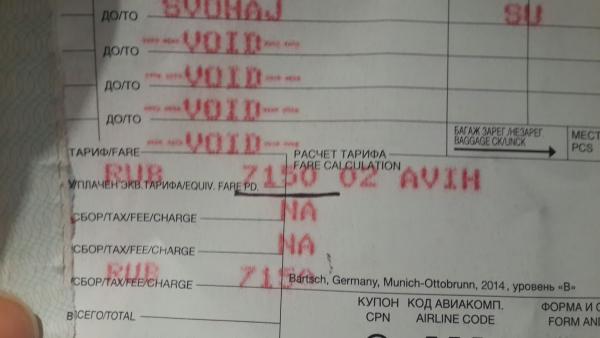 SVOHAJ SU
ДО/TO
--VOID--
ДО/TO
--VOID--
ДО/TO
--VOID--
ДО/TO
--VOID--
БАГАЖ ЗАРЕГ./НЕЗАРЕГ. МЕСТ
BAGGAGE CK/UNCK PCS
ТАРИФ/FARE РАСЧЕТ ТАРИФА
FARE CALCULATION
RUB 7150 02 AVIH
УПЛАЧЕН ЭКВ.ТАРИФА/EQUIV. FARE PD.
NA
СБОР/TAX/FEE/CHARGE
NA
СБОР/TAX/FEE/CHARGE
RUB 7150
СБОР/TAX/FEE/CHARGE Bartsch, Germany, Munich-Ottobrunn, 2014, уровень «В»
КУПОН КОД АВИАКОМП. ФОРМА И
ВСЕГО/TOTAL CPN AIRLINE CODE FORM AND